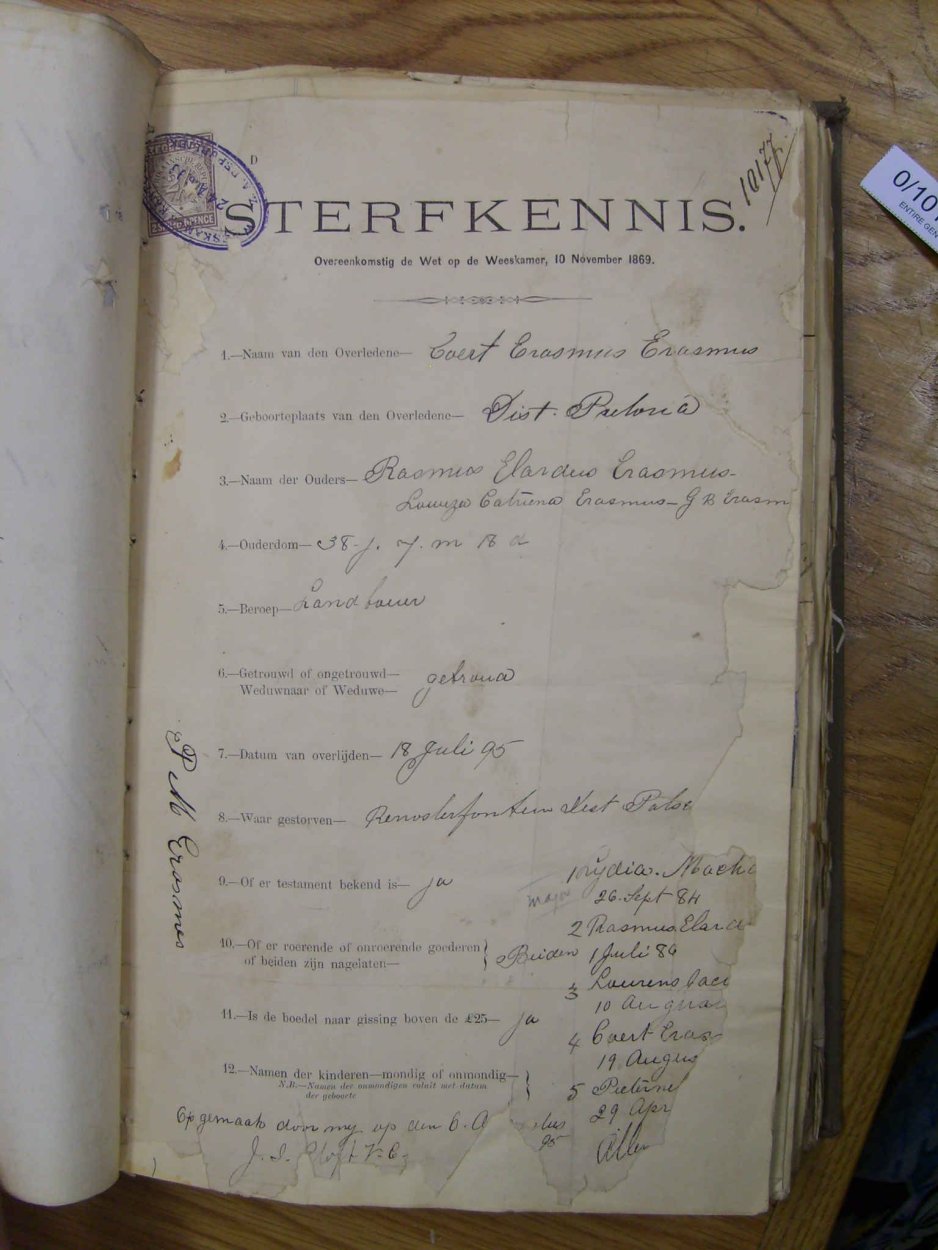 D
10177
STERFKENNIS.
Overeenkomstig de Wet op de Weeskamer, 10 November 1869.
1.—Naam van den Overledene— Coert Erasmus Erasmus
2.—Geboorteplaats van den Overledene— Dist. Pretoria
3.—Naam der Ouders— Rasmus Elardus Erasmus
Catriena Erasmus - G B Erasm
4.—Ouderdom— 38 j. 7 m 18 d
5.—Beroep— Landbouer
6.—Getrouwd of ongetrouwd—
Weduwnaar of Weduwe— getroud
7.—Datum van overlijden— 18 Juli 95
8.—Waar gestorven— Renosterfontein
9.—Of er testament bekend is— ja
10.—Of er roerende of onroerende goederen
of beiden zijn nagelaten— Beiden
11.—Is de boedel naar gissing boven de £25— ja
12.—Namen der kinderen—mondig of onmondig—
N.B.—Namen der onmondigen voluit met datum
der geboorte
major
1
26 Sept 84
2 Rasmus Elard
1 Juli 86
3 Lourens
10 Augus
4 Coert Eras
19 Augus
5 Pieterne
29 Apr
Opgemaak door my op den 6. A
95
P M Erasmus
0/10
ENTIRE GEN